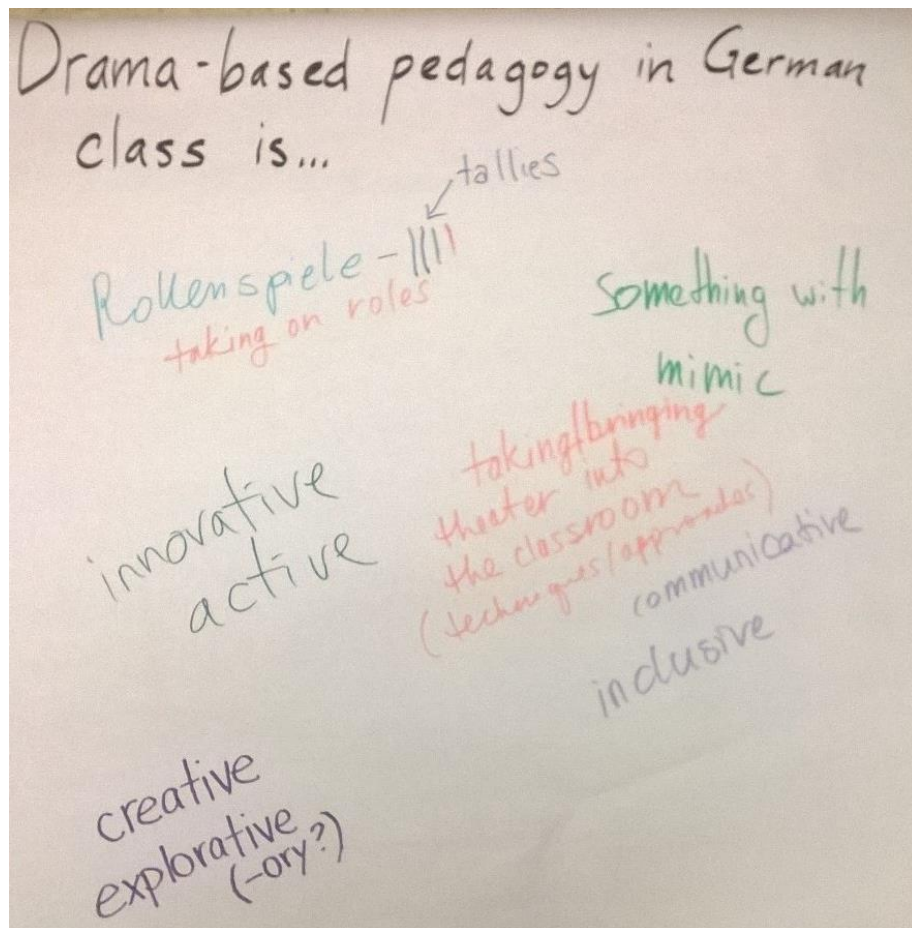 Drama-based pedagogy in German
class is...
tallies
Rollenspiele - ||||
taking on roles
Something with
mimic
taking/bringing
theater into
the classroom
(techniques/approaches)
innovative
active
communicative
inclusive
creative
explorative
(-ory?)